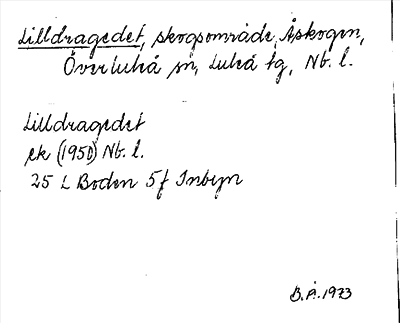 Lilldragedet, skogsområde, Åskogen,
Överluleå sn, Luleå tg, Nb. l.
Lilldragedet
ek (1950) Nb. l.
25 L Boden 5f Inbyn
B.Å. 1973